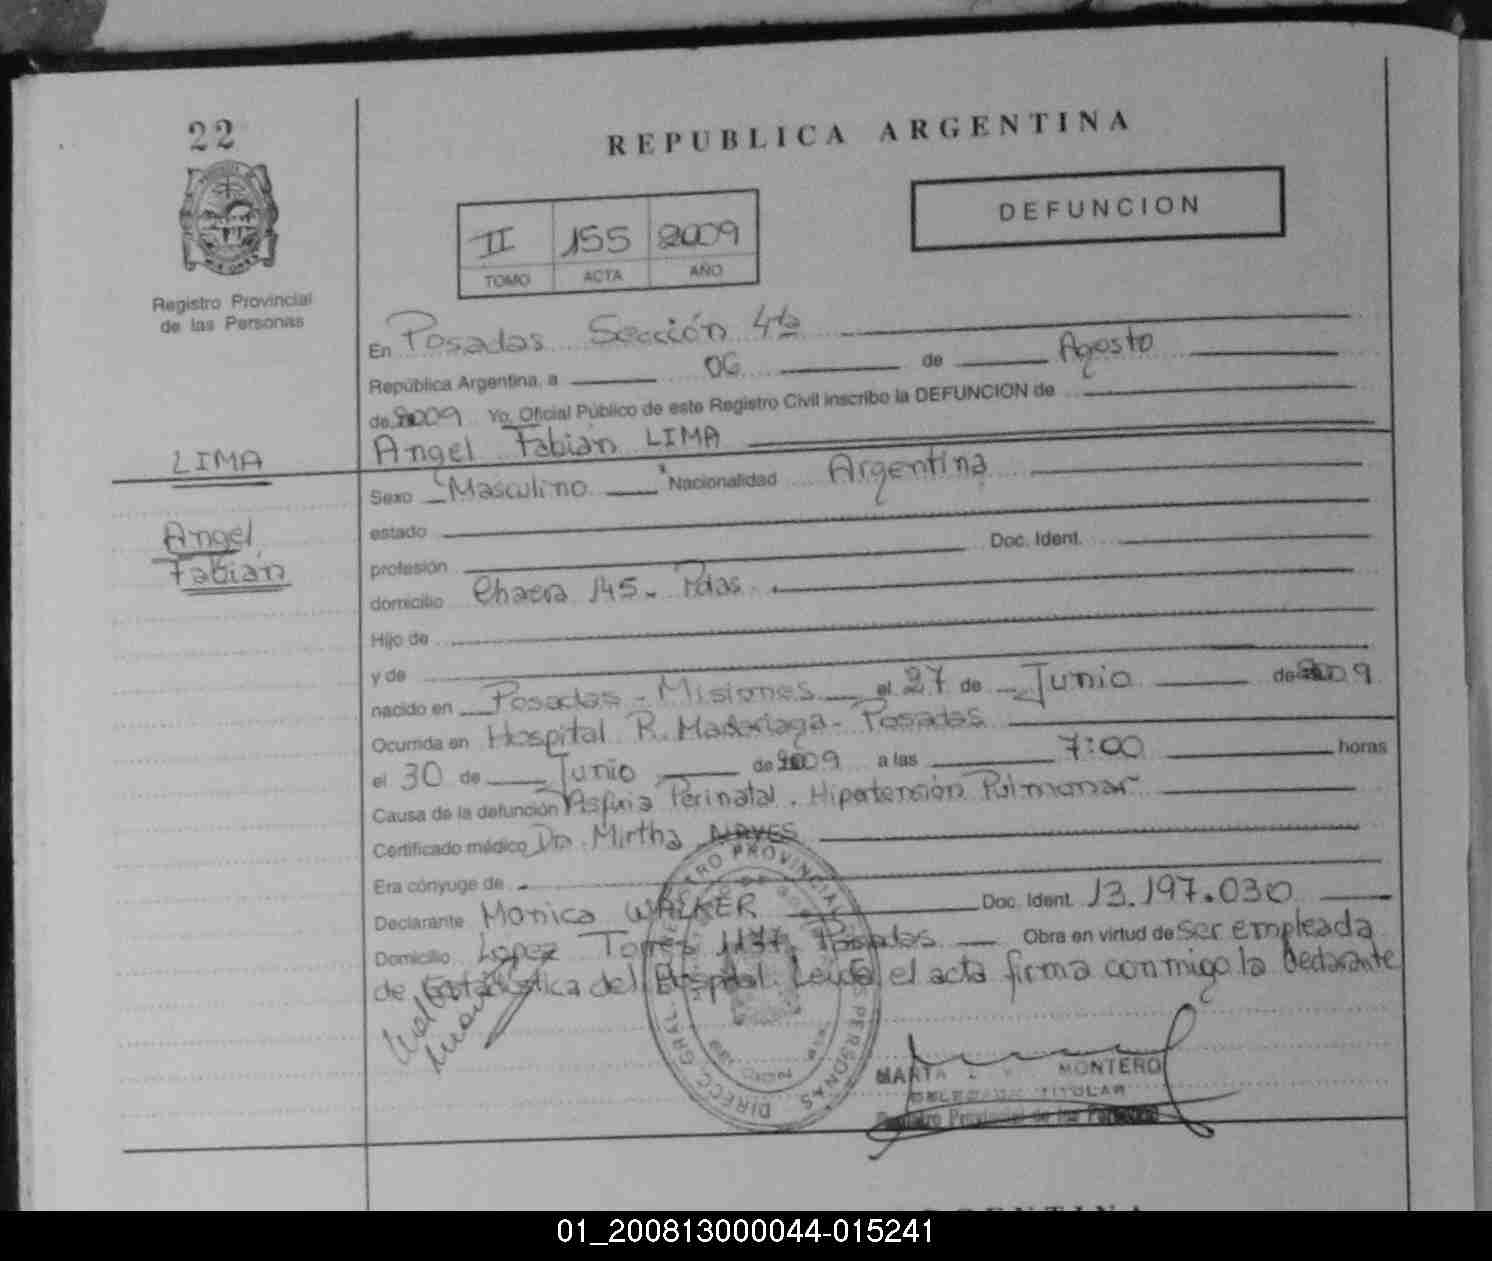 22
REPUBLICA ARGENTINA
DEFUNCION
II 155 2009
TOMO ACTA AÑO
Registro Provincial
de las Personas
En Posadas Sección 4ta
República Argentina, a 06 de Agosto
de 2009 Yo, Oficial Público de este Registro Civil inscribo la DEFUNCION de
Angel Fabián LIMA
LIMA
Angel
Fabián
Sexo Masculino Nacionalidad Argentina
estado
profesión Doc. Ident.
domicilio Chacra 145 - Pdas.
Hijo de
y de
nacido en Posadas - Misiones el 27 de Junio de 2009
Ocurrida en Hospital R. Madariaga - Posadas
el 30 de Junio de 2009 a las 7:00 horas
Causa de la defunción Asfixia Perinatal. Hipertensión Pulmonar
Certificado médico Dra. Mirtha NAVES
Era cónyuge de
Declarante Monica WALKER Doc. Ident. 13.197.030
Domicilio Lopez Torres 1137, Posadas Obra en virtud de ser empleada
de Estadistica del Hospital. Leida el acta firma conmigo la declarante
DIRECC. GRAL. REGISTRO PROVINCIAL DE LAS PERSONAS
MARTA MONTERO
DELEGADA TITULAR
Registro Provincial de las Personas
ARGENTINA
01_200813000044-015241